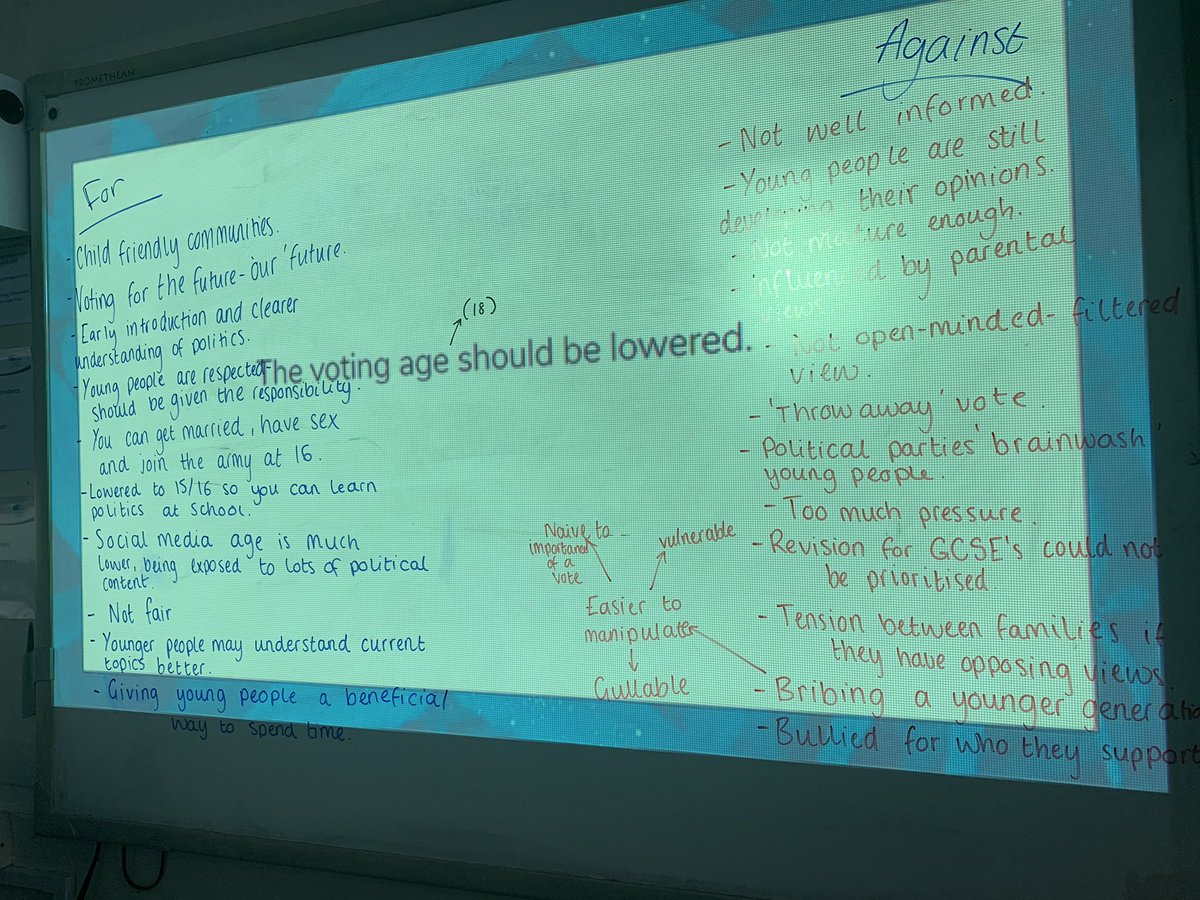 PROMETHEAN
For
- Child friendly communities.
- Voting for the future - 'our' future.
- Early introduction and clearer
understanding of politics.
- Young people are respected
should be given the responsibility.
- You can get married, have sex
and join the army at 16.
- Lowered to 15/16 so you can learn
politics at School.
- Social media age is much
lower, being exposed to lots of political
content.
- Not fair
- Younger people may understand current
topics better.
- Giving young people a beneficial
way to spend time.
(18)
The voting age should be lowered.
Naive to
importance
of a
vote
vulnerable
Easier to
manipulate
Gullable
Against
- Not well informed.
- Young people are still
developing their opinions.
- Not mature enough.
- influenced by parental
views
- Not open-minded - filtered
view.
- 'Throw away' vote.
- Political parties 'brainwash'
young people.
- Too much pressure.
- Revision for GCSE's could not
be prioritised.
- Tension between families if
they have opposing views.
- Bribing a younger generation
- Bullied for who they support